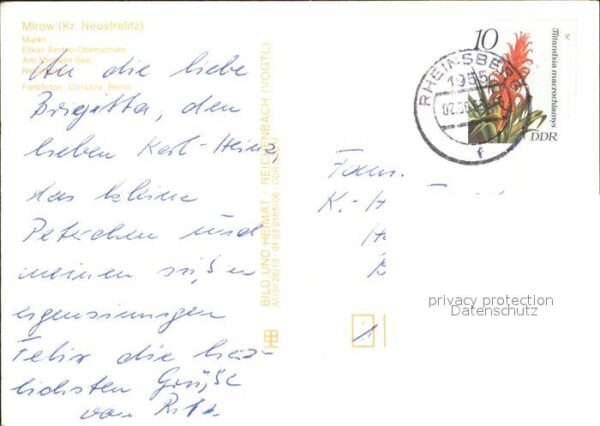 Mirow (Kr. Neustrelitz)
Markt
Etkar-André-Oberschule
Am Mirower See
Farbfotos: Darazza, Berlin
An die liebe
Birgitta, den
lieben Karl-Heinz,
das kleine
Peterchen und
meinen süßen
eigensinnigen
Felix die herz-
lichsten Grüße
von Rita.
BILD UND HEIMAT REICHENBACH (VOGTL)
10
Tillandsia macrochlamys
DDR
RHEINSBERG
1955
Fam.
K.-H
privacy protection
Datenschutz